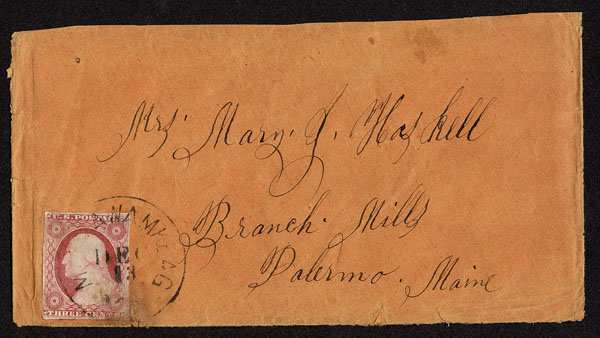 Mrs. Mary. J. Haskell
Branch. Mills
Palermo. Maine
U.S. POSTAGE
DEC
13
THREE CENTS